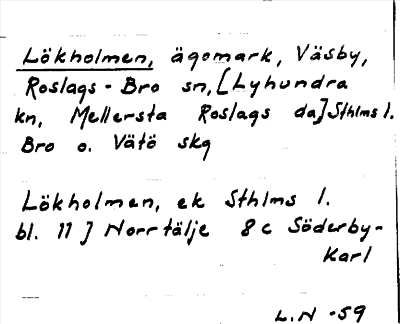 Lökholmen, ägomark, Väsby,
Roslags-Bro sn, [Lyhundra
kn, Mellersta Roslags da] Sthlms l.
Bro o. Vätö skg
Lökholmen, ek Sthlms l.
bl. 11 ] Norrtälje 8 c Söderby-
Karl
L.N -59